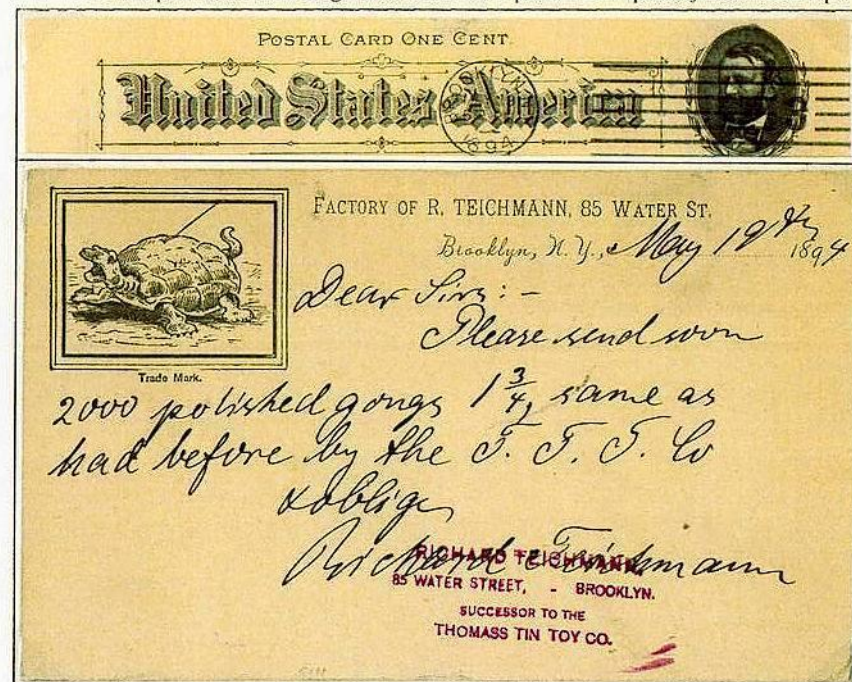 POSTAL CARD ONE CENT.
United States America
BROOKLYN
1894
FACTORY OF R. TEICHMANN, 85 WATER ST.
Brooklyn, N. Y., May 19th 1894
Dear Sirs:-
Please send soon
Trade Mark.
2000 polished gongs 1 3/4, same as
had before by the T. T. T. Co
& oblige
Richard Teichmann
RICHARD TEICHMANN,
85 WATER STREET, - BROOKLYN.
SUCCESSOR TO THE
THOMASS TIN TOY CO.